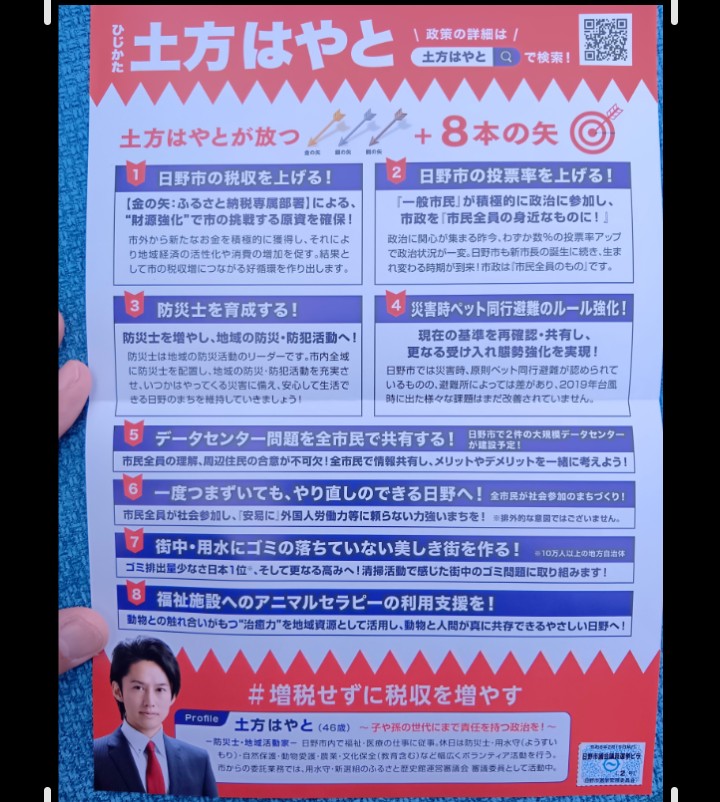 ひじかた
土方はやと
\ 政策の詳細は /
土方はやと
で検索！
土方はやとが放つ
金の矢 銀の矢 銅の矢
+ 8本の矢
1 日野市の税収を上げる！
【金の矢：ふるさと納税専属部署】による、
“財源強化”で市の挑戦する原資を確保！
市外から新たなお金を積極的に獲得し、それによ
り地域経済の活性化や消費の増加を促す。結果と
して市の税収増につながる好循環を作り出します。
2 日野市の投票率を上げる！
『一般市民』が積極的に政治に参加し、
市政を『市民全員の身近なものに！』
政治に関心が集まる昨今、わずか数％の投票率アップ
で政治状況が一変。日野市も新市長の誕生に続き、生ま
れ変わる時期が到来！市政は『市民全員のもの』です。
3 防災士を育成する！
防災士を増やし、地域の防災・防犯活動へ！
防災士は地域の防災活動のリーダーです。市内全域
に防災士を配置し、地域の防災・防犯活動を充実さ
せ、いつかはやってくる災害に備え、安心して生活で
きる日野のまちを維持していきましょう！
4 災害時ペット同行避難のルール強化！
現在の基準を再確認・共有し、
更なる受け入れ態勢強化を実現！
日野市では災害時、原則ペット同行避難が認められて
いるものの、避難所によっては差があり、2019年台風
時に出た様々な課題はまだ改善されていません。
5 データセンター問題を全市民で共有する！ 日野市で2件の大規模データセンター
が建設予定！
市民全員の理解、周辺住民の合意が不可欠！全市民で情報共有し、メリットやデメリットを一緒に考えよう！
6 一度つまずいても、やり直しのできる日野へ！ 全市民が社会参加のまちづくり！
市民全員が社会参加し、『安易に』外国人労働力等に頼らない力強いまちを！ ※排外的な意図ではございません。
7 街中・用水にゴミの落ちていない美しき街を作る！ ※10万人以上の地方自治体
ゴミ排出量少なさ日本1位※、そして更なる高みへ！清掃活動で感じた街中のゴミ問題に取り組みます！
8 福祉施設へのアニマルセラピーの利用支援を！
動物との触れ合いがもつ“治癒力”を地域資源として活用し、動物と人間が真に共存できるやさしい日野へ！
＃増税せずに税収を増やす
Profile 土方はやと（46歳） ～子や孫の世代にまで責任を持つ政治を！～
－防災士・地域活動家－ 日野市内で福祉・医療の仕事に従事。休日は防災士・用水守（ようすい
もり）・自然保護・動物愛護・農業・文化保全（教育含む）など幅広くボランティア活動を行う。
市からの委託業務では、用水守・新選組のふるさと歴史館運営審議会 審議委員として活動中。
日野市議会議員選挙ビラ
2
日野市選挙管理委員会